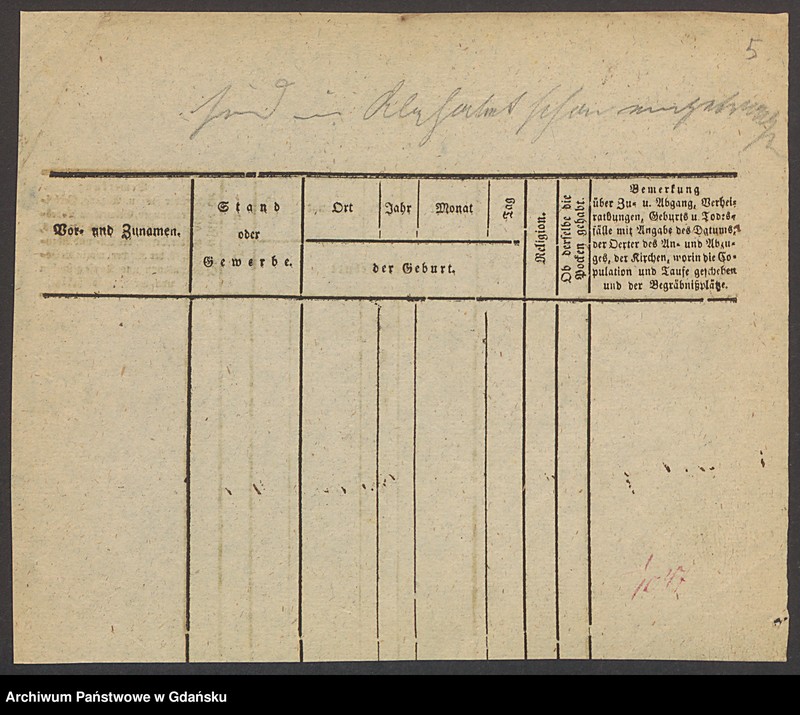 5
sind in
schon eingetragen
Vor- und Zunamen.
Stand
oder
Gewerbe.
Ort
Jahr
Monat
Tag
der Geburt.
Religion.
Ob derselbe die
Pocken gehabt.
Bemerkung
über Zu- u. Abgang, Verhei-
rathungen, Geburts u Todes-
fälle mit Angabe des Datums,
der Oerter des An- und Abzu-
ges, der Kirchen, worin die Co-
pulation und Taufe geschehen
und der Begräbnißplätze.
Archiwum Państwowe w Gdańsku